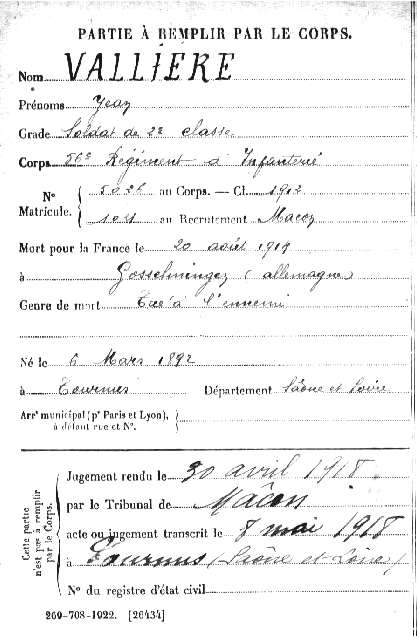 PARTIE À REMPLIR PAR LE CORPS.
Nom VALLIÈRE
Prénoms Jean
Grade Soldat de 2e classe
Corps 56e Régiment d'Infanterie
N° Matricule. { 5026 au Corps. — Cl. 1912
1041 au Recrutement Macon
Mort pour la France le 20 août 1914
à Gosselmingen (allemagne)
Genre de mort Tué à l'ennemi
Né le 6 Mars 1892
à Tournus Département Saône et Loire
Arrt municipal (pr Paris et Lyon), {
à défaut rue et N°.
Cette partie n'est pas à remplir par le Corps.
Jugement rendu le 30 avril 1918.
par le Tribunal de Mâcon
acte ou jugement transcrit le 8 mai 1918
à Tournus (Saône et Loire)
N° du registre d'état civil
269-708-1922. [26434]